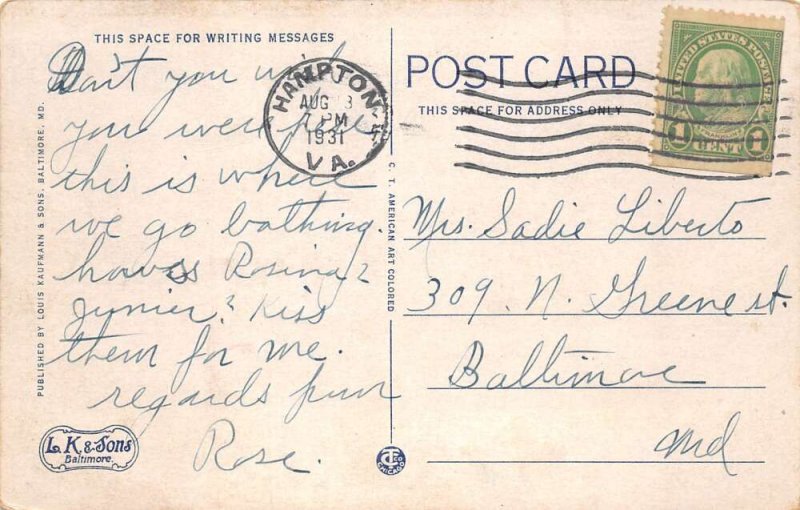 THIS SPACE FOR WRITING MESSAGES
Don't you wish
you were here
this is where
we go bathing.
hows Rosina?
Junier? Kiss
them for me.
regards from
Rose.
PUBLISHED BY LOUIS KAUFMANN & SONS, BALTIMORE, MD.
L. K. & Sons
Baltimore.
C. T. AMERICAN ART COLORED
CHICAGO
HAMPTON
AUG 3
PM
1931
VA.
POST CARD
THIS SPACE FOR ADDRESS ONLY
UNITED STATES POSTAGE
1 CENT 1
Mrs. Sadie Liberto
309 N. Greene st.
Baltimore
Md